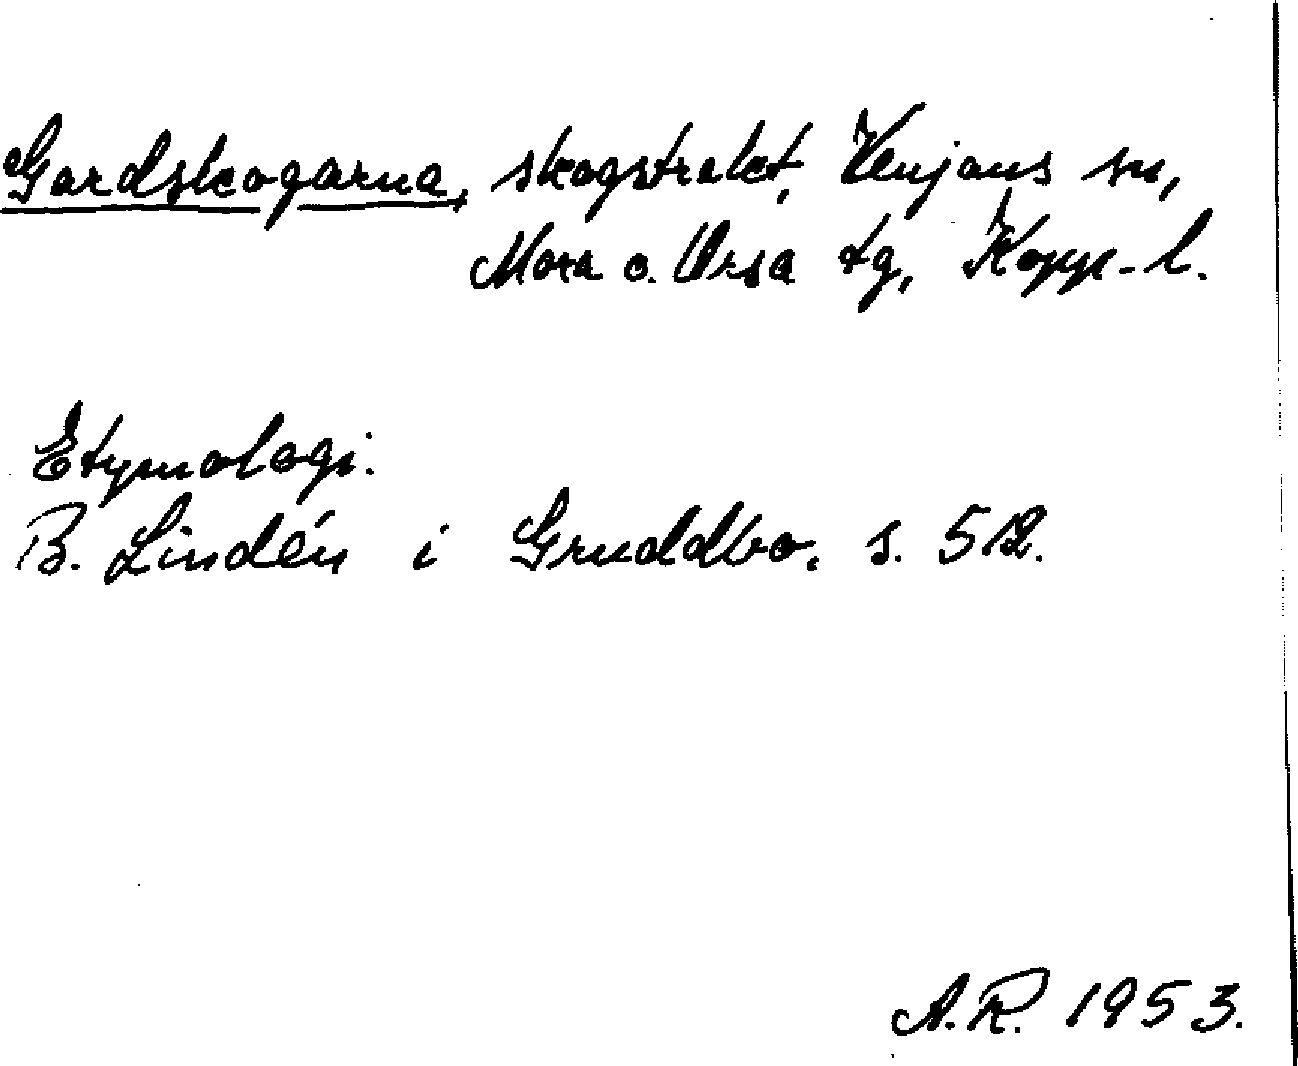 Gordskogarna, skogstrakt, Venjans sn,
Mora o. Orsa tg, Kopp-l.
Etymologi.
B. Lindén i Gruddbo, s. 512.
A.R. 1953.